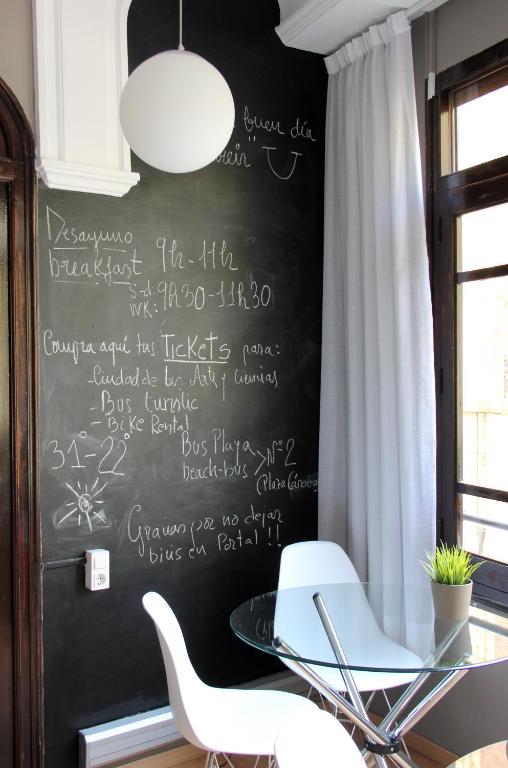 buen día
Desayuno
breakfast 9h-11h
S-d.
WK: 9h30-11h30
Compra aquí tus TICKETS para:
-Ciudad de las Arts y ciencias
-Bus turistic
-Bike Rental
31°-22°
Bus Playa
beach-bus > Nº2
Gracias por no dejar
bicis en Portal!!